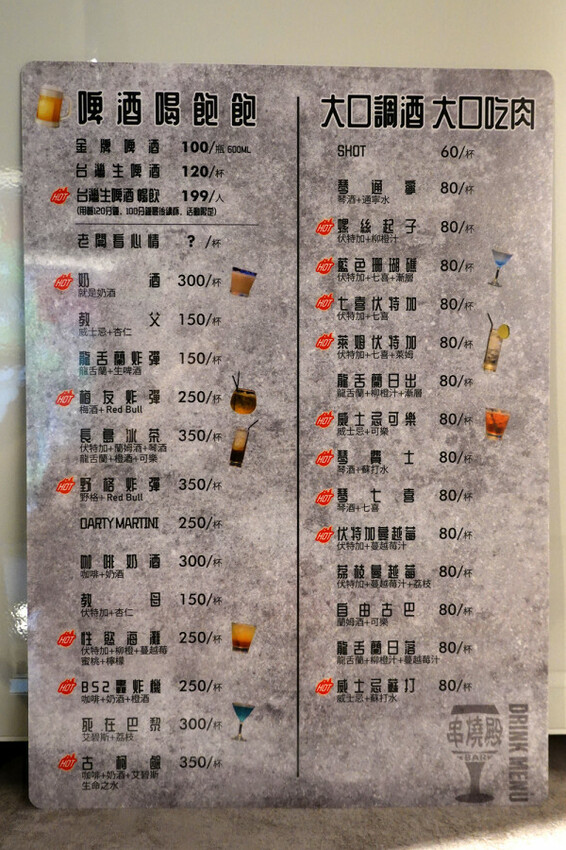 啤酒喝飽飽
金牌啤酒 100/瓶 600ML
台灣生啤酒 120/杯
HOT 台灣生啤酒暢飲 199/人
老闆看心情 ? /杯
HOT 奶酒 300/杯
就是奶酒
教父 150/杯
威士忌+杏仁
龍舌蘭炸彈 150/杯
龍舌蘭+生啤酒
HOT 梅友炸彈 250/杯
梅酒+Red Bull
長島冰茶 350/杯
伏特加+蘭姆酒+琴酒
龍舌蘭+橙酒+可樂
HOT 野格炸彈 350/杯
野格+Red Bull
OARTY MARTINI 250/杯
咖啡奶酒 300/杯
咖啡+奶酒
教母 150/杯
伏特加+杏仁
HOT 性慾海灘 250/杯
伏特加+柳橙+蔓越莓
蜜桃+檸檬
HOT B52轟炸機 250/杯
咖啡+奶酒+橙酒
死在巴黎 300/杯
艾碧斯+荔枝
HOT 古柯鹼 350/杯
咖啡+奶酒+艾碧斯
生命之水
大口調酒 大口吃肉
SHOT 60/杯
琴通寧 80/杯
琴酒+通寧水
HOT 螺絲起子 80/杯
伏特加+柳橙汁
HOT 藍色珊瑚礁 80/杯
伏特加+七喜+漸層
HOT 七喜伏特加 80/杯
伏特加+七喜
HOT 萊姆伏特加 80/杯
伏特加+七喜+萊姆
龍舌蘭日出 80/杯
龍舌蘭+柳橙汁+漸層
HOT 威士忌可樂 80/杯
威士忌+可樂
HOT 琴費士 80/杯
琴酒+蘇打水
HOT 琴七喜 80/杯
琴酒+七喜
HOT 伏特加蔓越莓 80/杯
伏特加+蔓越莓汁
荔枝蔓越莓 80/杯
伏特加+蔓越莓汁+荔枝
自由古巴 80/杯
蘭姆酒+可樂
龍舌蘭日落 80/杯
龍舌蘭+柳橙汁+蔓越莓汁
HOT 威士忌蘇打 80/杯
威士忌+蘇打水
串燒殿
BAR
DRINK MENU